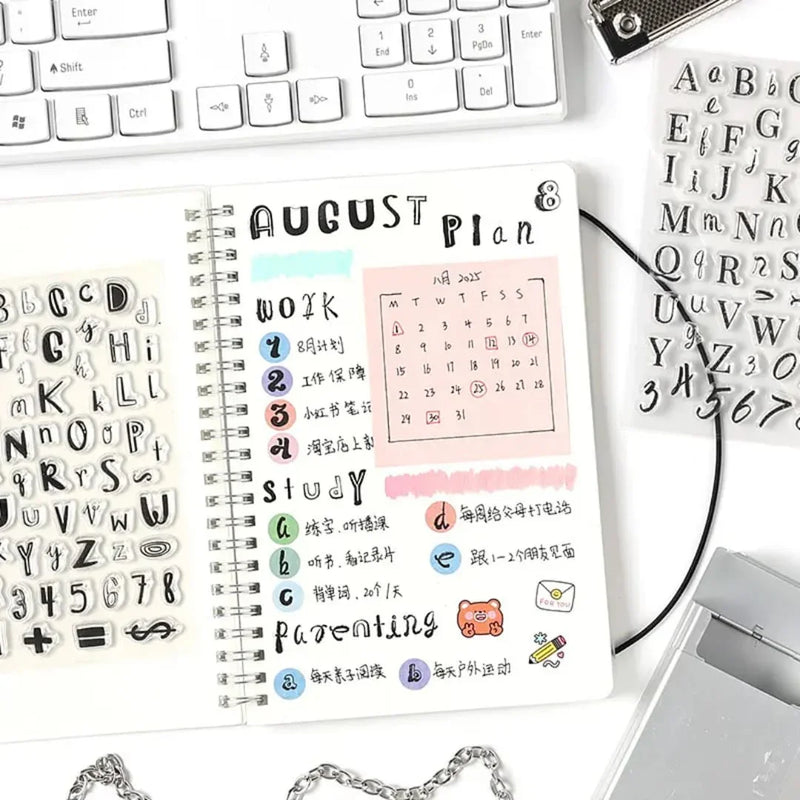 Enter
Shift
Ctrl
1
End
2
3
PgDn
Enter
0
Ins
.
Del
AUGUST
Plan
8
八月 2025
M T W T F S S
1 2 3 4 5 6 7
8 9 10 11 12 13 14
15 16 17 18 19 20 21
22 23 24 25 26 27 28
29 30 31
work
1 8月计划
2 工作保障
3 小红书笔记
4 淘宝店上新
study
a 练字、听播课
b 听书、看记录片
c 背单词、20个/天
d 每周给父母打电话
e 跟1-2个朋友见面
FOR YOU
Parenting
a 每天亲子阅读
b 每天户外运动
B b C c D d
G g H i
K k L l
N n O o P
q R r S
U V v W W
X y Y z Z
3 4 5 6 7 8
+ = $
A a B b C
e
E f F G g
I i J j K
M m N n
Q q R r S
U u V v W
Y Z 3
3 4 5 6 7 8